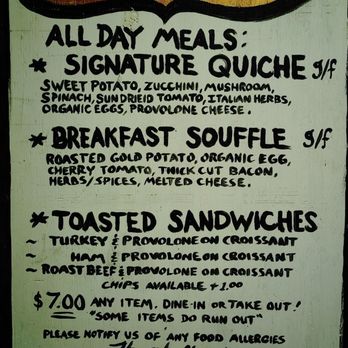 ALL DAY MEALS:
* SIGNATURE QUICHE g/f
SWEET POTATO, ZUCCHINI, MUSHROOM,
SPINACH, SUNDRIED TOMATO, ITALIAN HERBS,
ORGANIC EGGS, PROVOLONE CHEESE.
* BREAKFAST SOUFFLE g/f
ROASTED GOLD POTATO, ORGANIC EGG,
CHERRY TOMATO, THICK CUT BACON,
HERBS/SPICES, MELTED CHEESE.
* TOASTED SANDWICHES
~ TURKEY & PROVOLONE ON CROISSANT
~ HAM & PROVOLONE ON CROISSANT
~ ROAST BEEF & PROVOLONE ON CROISSANT
CHIPS AVAILABLE +1.00
$7.00 ANY ITEM. DINE-IN OR TAKE OUT!
"SOME ITEMS DO RUN OUT"
PLEASE NOTIFY US OF ANY FOOD ALLERGIES